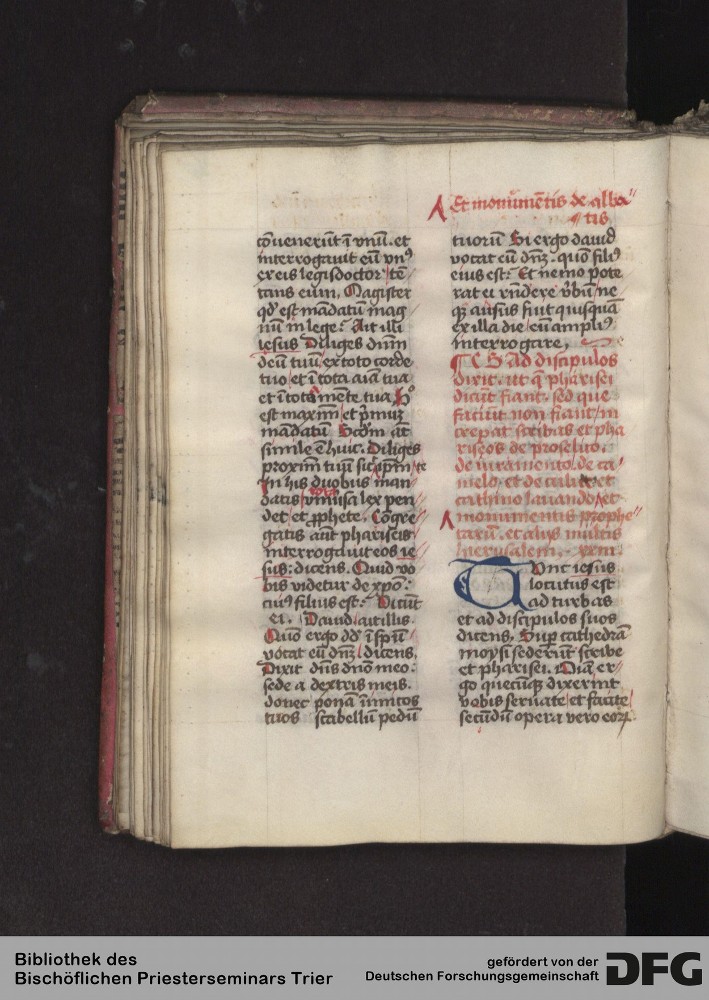 ꝯuenerūt ī vnū. et
interrogauit eū vnꝰ
ex eis legisdoctor tē
tans eum. Magister
qd' est mādatū mag
nū in lege: Ait illi
iesus Diliges dn̄m
deū tuū ex toto corde
tuo et ī tota aīa tua
et ī tota mēte tua. Hͦ
est maxīm et pͥmuȝ
mādatū Scd̄m āt
simile ē huic. Diliges
proxīm tuū sic teip̄m
In his duobus man
datis vniuīsa lex pen
det et ꝓphete. Cōgre
gatis aūt phariseis
interrogauit eos ie
sus: dicens. Quid vo
bis videtur de xp̄o:
cuiꝰ filius est: Dicūt
ei. Dauid ait illis.
Quōo ergo dd' ī sp̄ū
vocat eū dn̄ȝ dicens.
Dixit dn̄s dn̄o meo:
sede a dextris meis.
donec ponā īimicos
tuos scabellū pedū
Et monumētis de alba
tis
tuorū Si ergo dauid
vocat eū dn̄ȝ. quōo filiꝰ
eius est: Et nemo pote
rat ei rn̄dere v̄bū ne
qȝ ausus fuit quisquā
ex illa die eū ampliꝰ
interrogare,
IC S Ad discipulos
dixit. ut q̄ pharisei
dicūt fiant. sed que
faciūt non fiant in
crepat scribas et pha
riseos de proselito.
de iuramento de ca
melo et de calice et
cathino lauando et
monumentis prophe
tarū. et alijs multis
hierusalem. xxiii
Tūnc iesus
locutus est
ad turbas
et ad discipulos suos
dicens, Suꝑ cathedrā
moysi sederūt scribe
et pharisei. Oīa er
go quecūqȝ dixerint
vobis seruate et facite
secūdū opera vero eoꝝ
Bibliothek des
Bischöflichen Priesterseminars Trier
gefördert von der
Deutschen Forschungsgemeinschaft
DFG